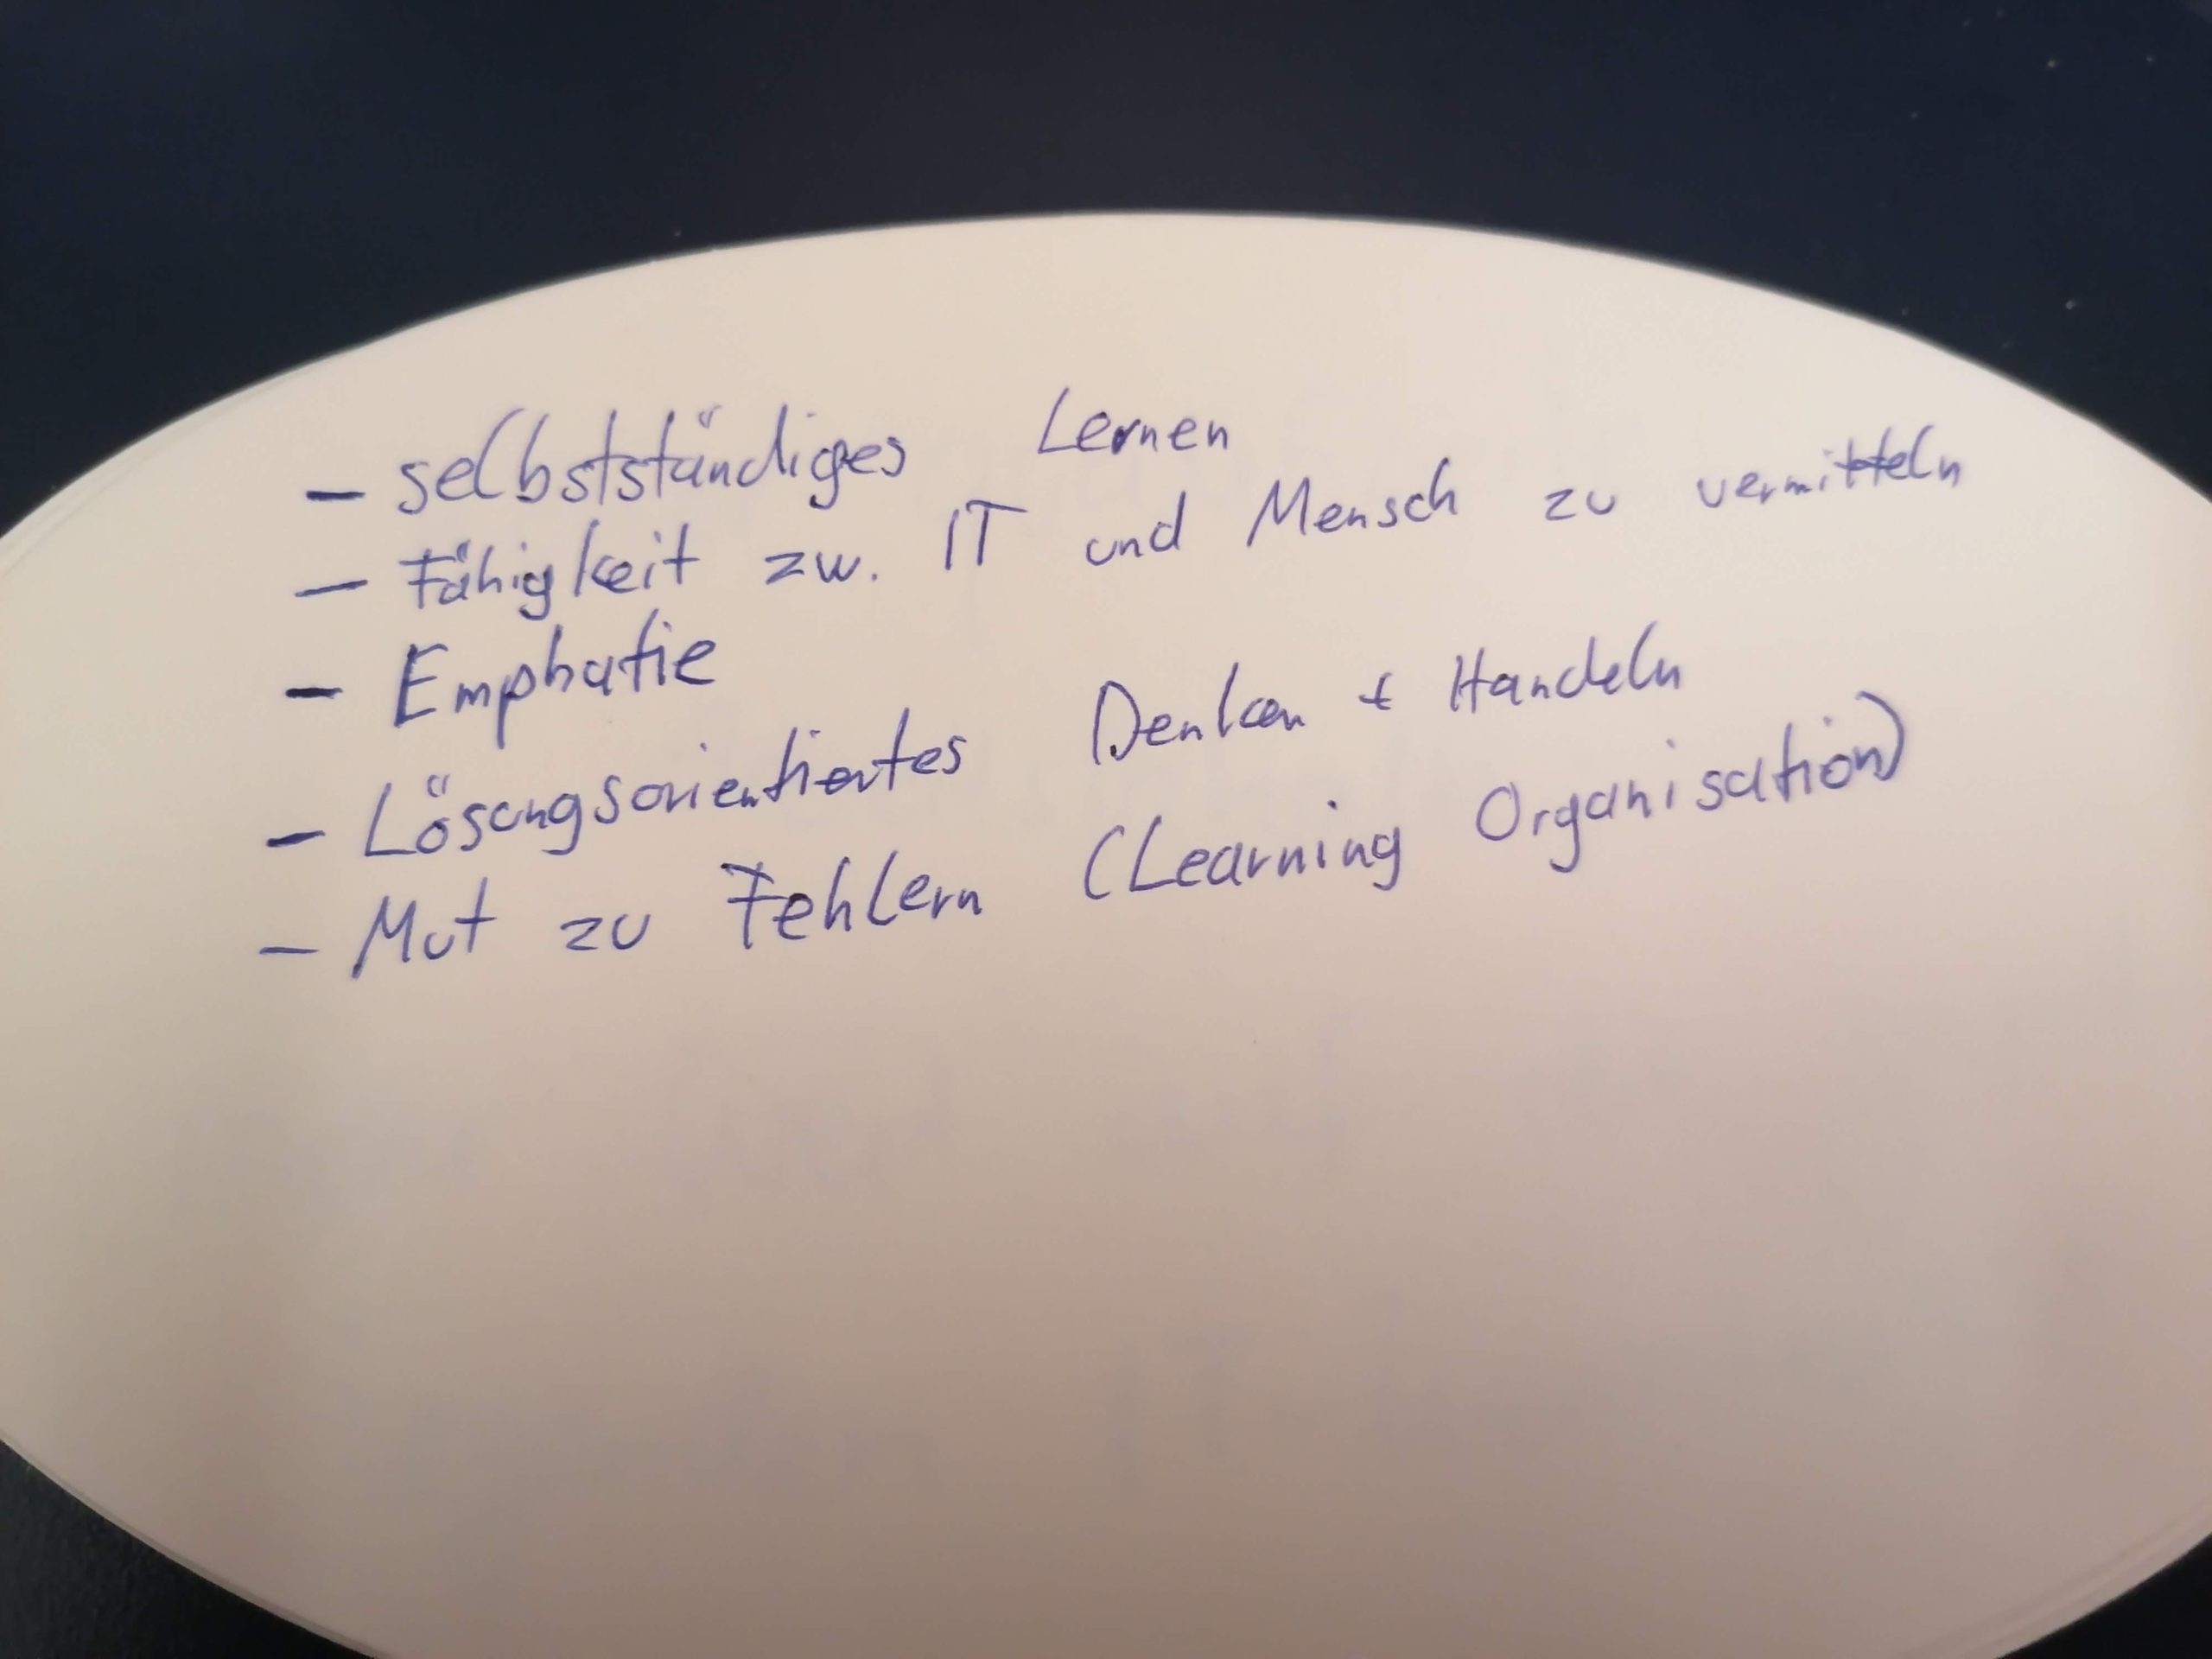 - selbstständiges Lernen
- Fähigkeit zw. IT und Mensch zu vermitteln
- Emphatie
- Lösungsorientiertes Denken + Handeln
- Mut zu Fehlern (Learning Organisation)